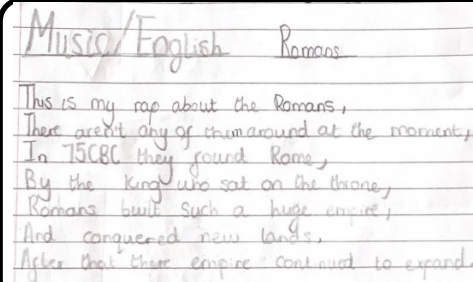 Music/English Romans
This is my rap about the Romans,
There aren't any of them around at the moment,
In 75CBC they found Rome,
By the king who sat on the throne,
Romans built such a huge empire,
And conquered new lands,
After that there empire continued to expand